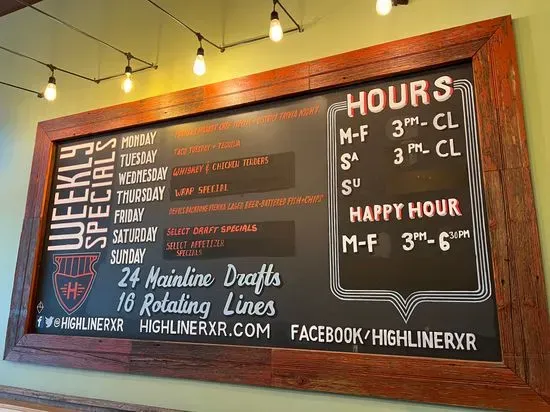 WEEKLY
SPECIALS
MONDAY
TUESDAY TACO TUESDAY + TEQUILA
WEDNESDAY WHISKEY & CHICKEN TENDERS
THURSDAY WRAP SPECIAL
FRIDAY DEVILS BACKBONE VIENNA LAGER BEER-BATTERED FISH + CHIPS
SATURDAY SELECT DRAFT SPECIALS
SUNDAY SELECT APPETIZER
SPECIALS
H
24 Mainline Drafts
16 Rotating Lines
@HIGHLINERXR HIGHLINERXR.COM FACEBOOK/HIGHLINERXR
HOURS
M-F 3PM-CL
SA 3PM-CL
SU
HAPPY HOUR
M-F 3PM-630PM